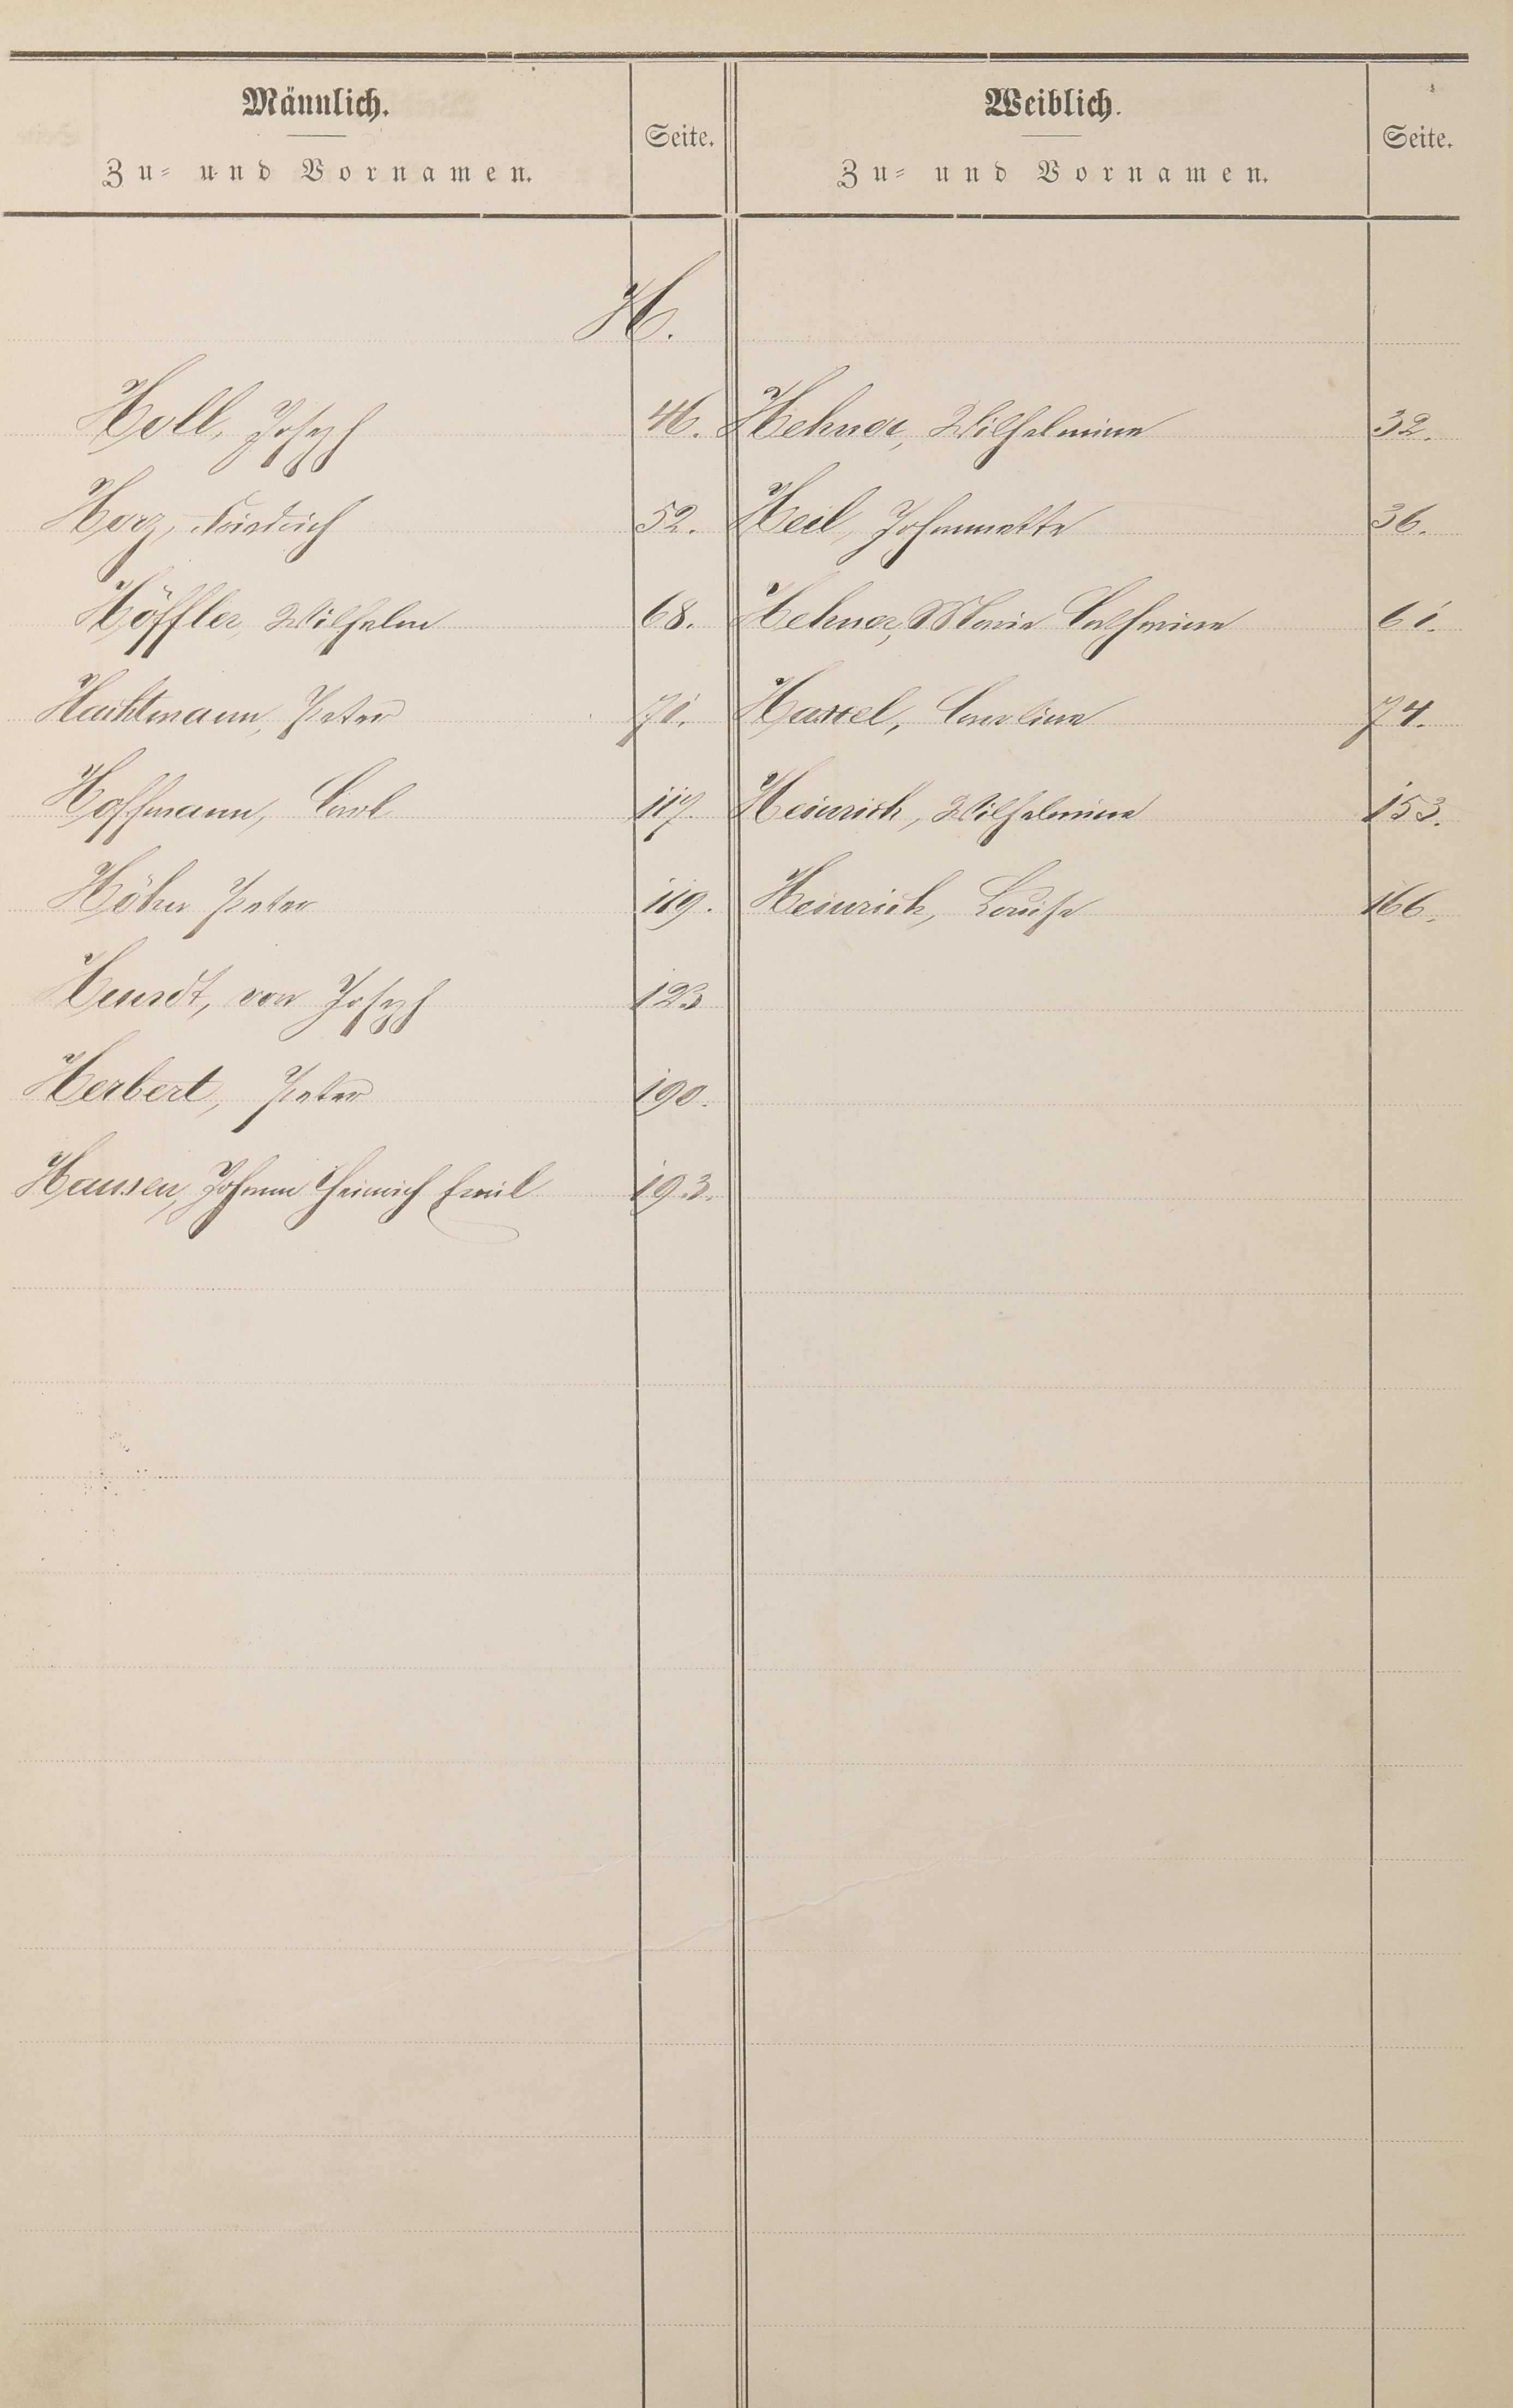 Männlich.
Zu- und Vornamen.
Seite.
Weiblich.
Zu- und Vornamen.
Seite.
H.
Holl, Joseph 46. Hehner, Wilhelmine 32.
Horz, Friedrich 52. Heil, Johannette 36.
Höffler, Wilhelm 68. Hehner, Marie Catharine 61.
Hachtmann, Peter 71. Hassel, Caroline 74.
Hoffmann, Carl 117. Heinrich, Wilhelmine 153.
Höhn Peter 119. Heinrich, Louise 166.
von Joseph 123
Herbert, Peter 190.
Hansen, Johann Heinrich Emil 193.